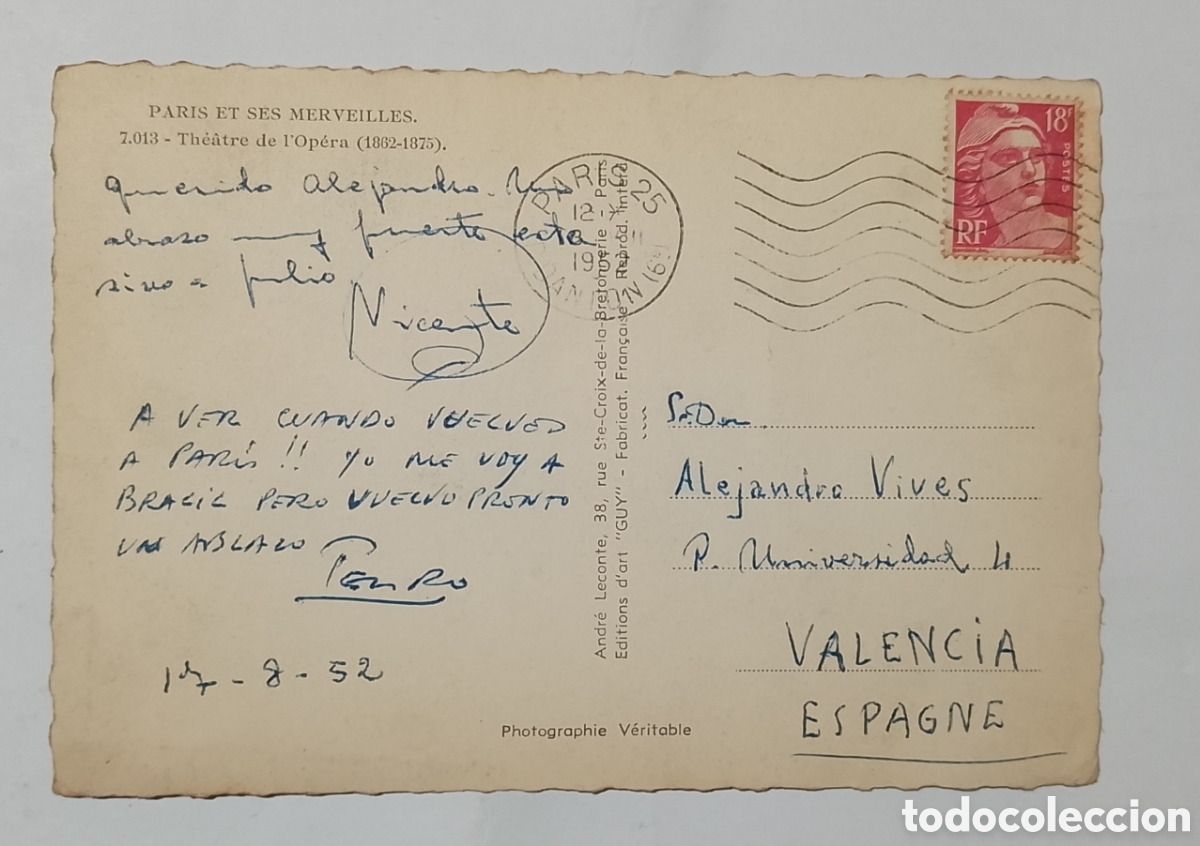 PARIS ET SES MERVEILLES.
7.013 - Théâtre de l'Opéra (1862-1875).
Querido Alejandro. Un
abrazo muy fuerte
Julio
Vicente
A VER CUANDO VUELVES
A PARÍS!! YO ME VOY A
BRASIL PERO VUELVO PRONTO
UN ABRAZO
PEDRO
17-8-52
PARIS 25
12
19
André Leconte, 38, rue Ste-Croix-de-la-Bretonnerie - Paris
Editions d'art "GUY" - Fabricat. Française - Reprod. interd.
Photographie Véritable
18F
POSTES
RF
Sr. Don
Alejandro Vives
P. Universidad 4
VALENCIA
ESPAGNE
todocoleccion